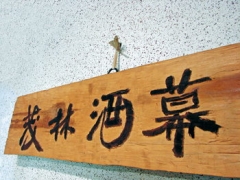 茂林酒幕